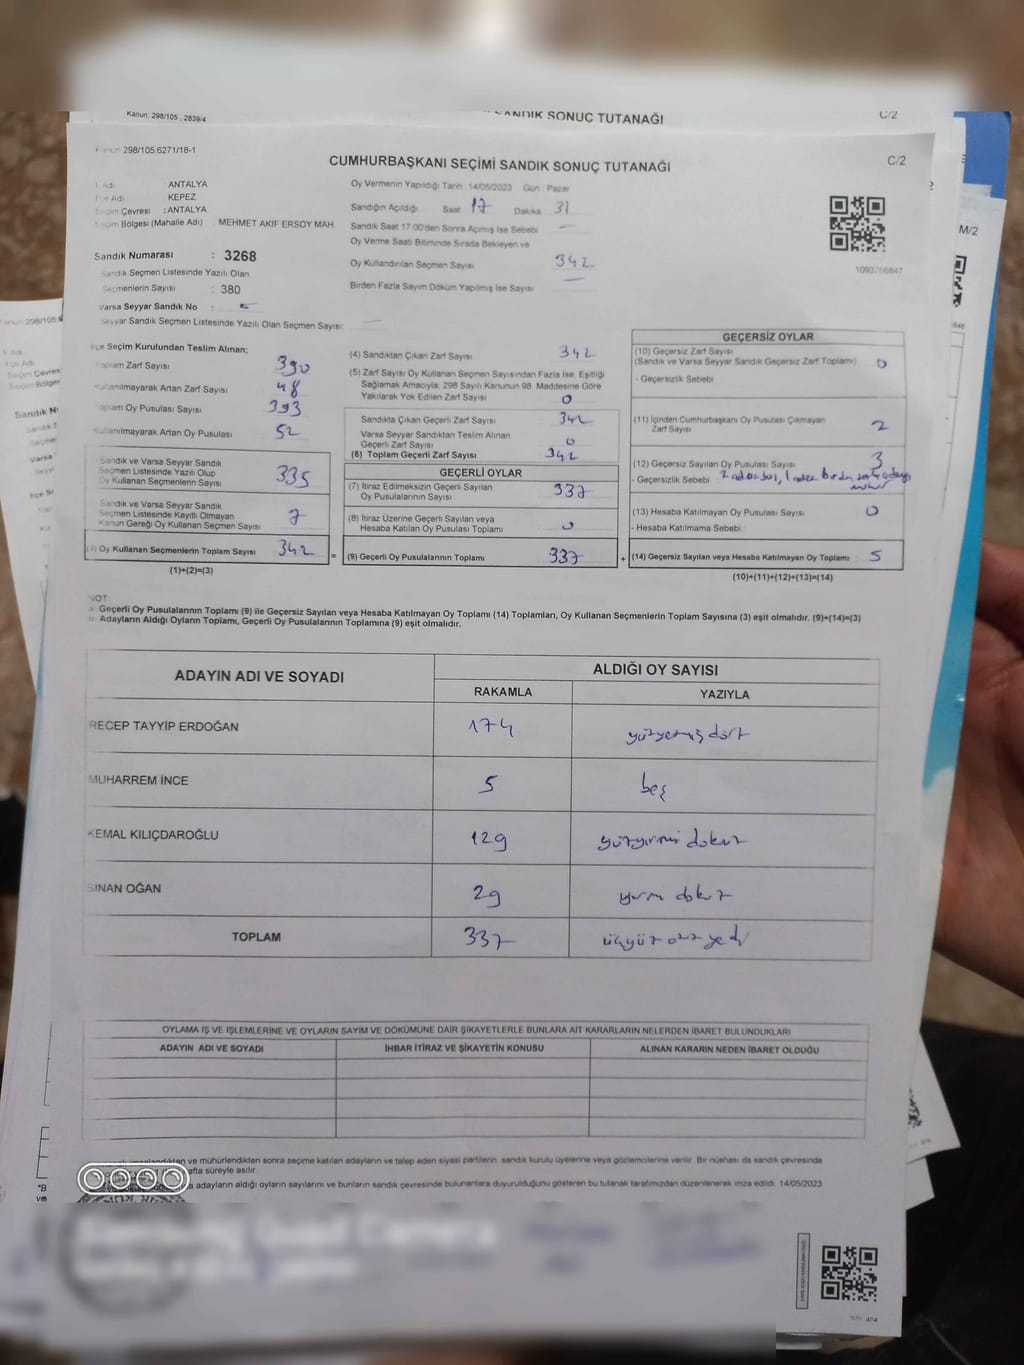 Kanun: 298/105 2839/4
SANDIK SONUÇ TUTANAĞI
C/2
298/105.6271/18-1
CUMHURBAŞKANI SEÇİMİ SANDIK SONUÇ TUTANAĞI
C/2
İl Adı ANTALYA
İlçe Adı KEPEZ
Seçim Çevresi : ANTALYA
Seçim Bölgesi (Mahalle Adı) : MEHMET AKİF ERSOY MAH
Sandık Numarası : 3268
Sandık Seçmen Listesinde Yazılı Olan
Seçmenlerin Sayısı : 380
Varsa Seyyar Sandık No :
Seyyar Sandık Seçmen Listesinde Yazılı Olan Seçmen Sayısı:
Oy Vermenin Yapıldığı Tarih : 14/05/2023 Gün : Pazar
Sandığın Açıldığı Saat 17 Dakika 31
Sandık Saat 17.00'den Sonra Açılmış İse Sebebi
Oy Verme Saati Bitiminde Sırada Bekleyen ve
Oy Kullandırılan Seçmen Sayısı 342
Birden Fazla Sayım Döküm Yapılmış İse Sayısı
1093766847
M/2
İlçe Seçim Kurulundan Teslim Alınan;
Toplam Zarf Sayısı 390
Kullanılmayarak Artan Zarf Sayısı 48
Toplam Oy Pusulası Sayısı 393
Kullanılmayarak Artan Oy Pusulası 52
Sandık ve Varsa Seyyar Sandık
Seçmen Listesinde Yazılı Olup
Oy Kullanan Seçmenlerin Sayısı 335
Sandık ve Varsa Seyyar Sandık
Seçmen Listesinde Kayıtlı Olmayan
Kanun Gereği Oy Kullanan Seçmen Sayısı 7
(3) Oy Kullanan Seçmenlerin Toplam Sayısı 342
(1)+(2)=(3)
(4) Sandıktan Çıkan Zarf Sayısı 342
(5) Zarf Sayısı Oy Kullanan Seçmen Sayısından Fazla İse, Eşitliği
Sağlamak Amacıyla; 298 Sayılı Kanunun 98. Maddesine Göre
Yakılarak Yok Edilen Zarf Sayısı 0
Sandıkta Çıkan Geçerli Zarf Sayısı 342
Varsa Seyyar Sandıktan Teslim Alınan
Geçerli Zarf Sayısı 0
(6) Toplam Geçerli Zarf Sayısı 342
GEÇERLİ OYLAR
(7) İtiraz Edilmeksizin Geçerli Sayılan
Oy Pusulalarının Sayısı 337
(8) İtiraz Üzerine Geçerli Sayılan veya
Hesaba Katılan Oy Pusulası Toplamı 0
= (9) Geçerli Oy Pusulalarının Toplamı 337 +
GEÇERSİZ OYLAR
(10) Geçersiz Zarf Sayısı
(Sandık ve Varsa Seyyar Sandık Geçersiz Zarf Toplamı) 0
- Geçersizlik Sebebi
(11) İçinden Cumhurbaşkanı Oy Pusulası Çıkmayan
Zarf Sayısı 2
(12) Geçersiz Sayılan Oy Pusulası Sayısı 3
- Geçersizlik Sebebi 2 adet boş, 1 adet birden
(13) Hesaba Katılmayan Oy Pusulası Sayısı 0
- Hesaba Katılmama Sebebi
(14) Geçersiz Sayılan veya Hesaba Katılmayan Oy Toplamı 5
(10)+(11)+(12)+(13)=(14)
NOT:
a- Geçerli Oy Pusulalarının Toplamı (9) ile Geçersiz Sayılan veya Hesaba Katılmayan Oy Toplamı (14) Toplamları, Oy Kullanan Seçmenlerin Toplam Sayısına (3) eşit olmalıdır. (9)+(14)=(3)
b- Adayların Aldığı Oyların Toplamı, Geçerli Oy Pusulalarının Toplamına (9) eşit olmalıdır.
ADAYIN ADI VE SOYADI
ALDIĞI OY SAYISI
RAKAMLA YAZIYLA
RECEP TAYYİP ERDOĞAN 174 yüzyetmiş dört
MUHARREM İNCE 5 beş
KEMAL KILIÇDAROĞLU 129 yüzyirmi dokuz
SİNAN OĞAN 29 yirmi dokuz
TOPLAM 337 üçyüz otuz yedi
OYLAMA İŞ VE İŞLEMLERİNE VE OYLARIN SAYIM VE DÖKÜMÜNE DAİR ŞİKAYETLERLE BUNLARA AİT KARARLARIN NELERDEN İBARET BULUNDUKLARI
ADAYIN ADI VE SOYADI İHBAR İTİRAZ VE ŞİKAYETİN KONUSU ALINAN KARARIN NEDEN İBARET OLDUĞU
ve mühürlendikten sonra seçime katılan adayların ve talep eden siyasi partilerin sandık kurulu üyelerine veya gözlemcilerine verilir. Bir nüshası da sandık çevresinde
afta süreyle asılır.
adayların aldığı oyların sayılarını ve bunların sandık çevresinde bulunanlara duyurulduğunu gösteren bu tutanak tarafımızdan düzenlenerek imza edildi. 14/05/2023